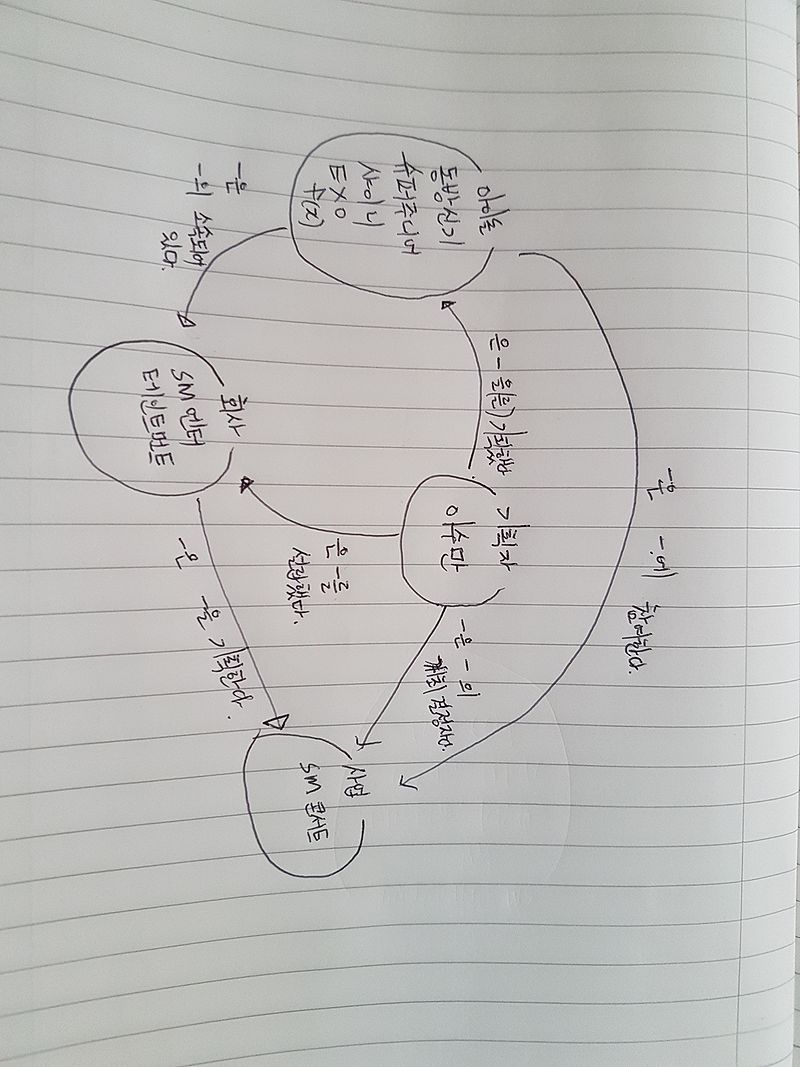 아이돌
동방신기
슈퍼주니어
샤이니
EXO
f(x)
-은
-의 소속되어
있다.
회사
SM 엔터
테인트먼트
은 - 을(를) 기획했다.
기획자
이수만
은 -를
설립했다.
-은 -의
개최 결정자다.
-은 -을 기획한다.
사업
SM 콘서트
-은 -에 참여한다.